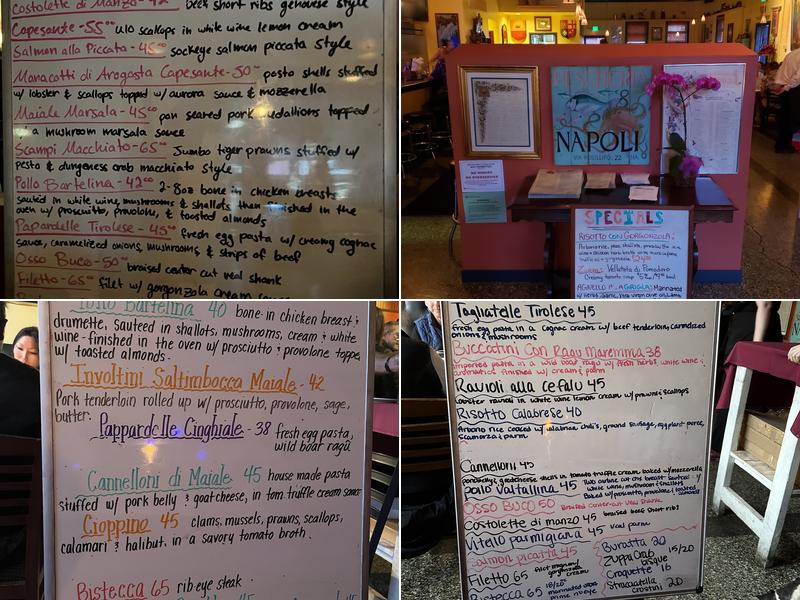 Costolette di Manzo - 42⁰⁰ beef short ribs genovese style
Capesante - 55⁰⁰ U10 scallops in white wine lemon cream
Salmon alla Piccata - 45⁰⁰ sockeye salmon piccata style
Manacotti di Aragosta Capesante - 50⁰⁰ pasta shells stuffed
w/ lobster & scallops topped w/ aurora sauce & mozzerella
Maiale Marsala - 45⁰⁰ pan seared pork medallions topped
a mushroom marsala sauce
Scampi Macchiato - 65⁰⁰ Jumbo tiger prawns stuffed w/
pesto & dungeness crab macchiato style
Pollo Bartelina - 42⁰⁰ 2-8oz bone in chicken breasts
sauted in white wine, mushrooms & shallots then finished in the
oven w/ prosciutto, provolone, & toasted almonds
Papardelle Tirolese - 45⁰⁰ fresh egg pasta w/ creamy cognac
sauce, caramelized onions, mushrooms & strips of beef
Osso Buco - 50⁰⁰ braised center cut veal shank
Filetto - 65⁰⁰ filet w/ gorgonzola cream sauce
NAPOLI
VIA POSILLIPO, 22
SPECIALS
RISOTTO CON GORGONZOLA:
Zuppa: Vellutata di Pomodoro
Creamy tomato soup
Pollo Bartelina 40 bone-in chicken breast &
drumette, sauteed in shallots, mushrooms, cream & white
wine-finished in the oven w/ prosciutto & provolone toppe
w/ toasted almonds.
Involtini Saltimbocca Maiale - 42
Pork tenderloin rolled up w/ prosciutto, provolone, sage,
butter.
Pappardelle Cinghiale - 38 fresh egg pasta,
wild boar ragu
Cannelloni di Maiale 45 house made pasta
stuffed w/ pork belly & goat cheese, in tom truffle cream sauce
Cioppino 45 clams, mussels, prawns, scallops,
calamari & halibut, in a savory tomato broth.
Bistecca 65 rib eye steak
Tagliatelle Tirolese 45
fresh egg pasta in a cognac cream w/ beef tenderloin, carmelized
onions & mushrooms
Buccatini Con Ragu Maremma 38
imported pasta in a wild boar ragu w/ fresh herbs, white wine &
aromatics finished w/ cream & parm
Ravioli alla Cefalu 45
lobster ravioli in white wine lemon cream w/ prawns & scallops
Risotto Calabrese 40
Arborio rice cooked w/ calabrian chili's, ground sausage, eggplant puree,
scamorza & parm
Cannelloni 45
Pollo Valtallina 45
Osso Buco 50 Braised center-cut veal shank
Costolette di manzo 45 braised beef short ribs
Vitello parmigiana 45 veal parm
Salmon picatta 45
Filetto 65 filet mignon/ gorgonzola cream
Bistecca 65
Buratta 20
Zuppa Crab bisque 15/20
Croquette 16
Stracciatella crostini 20